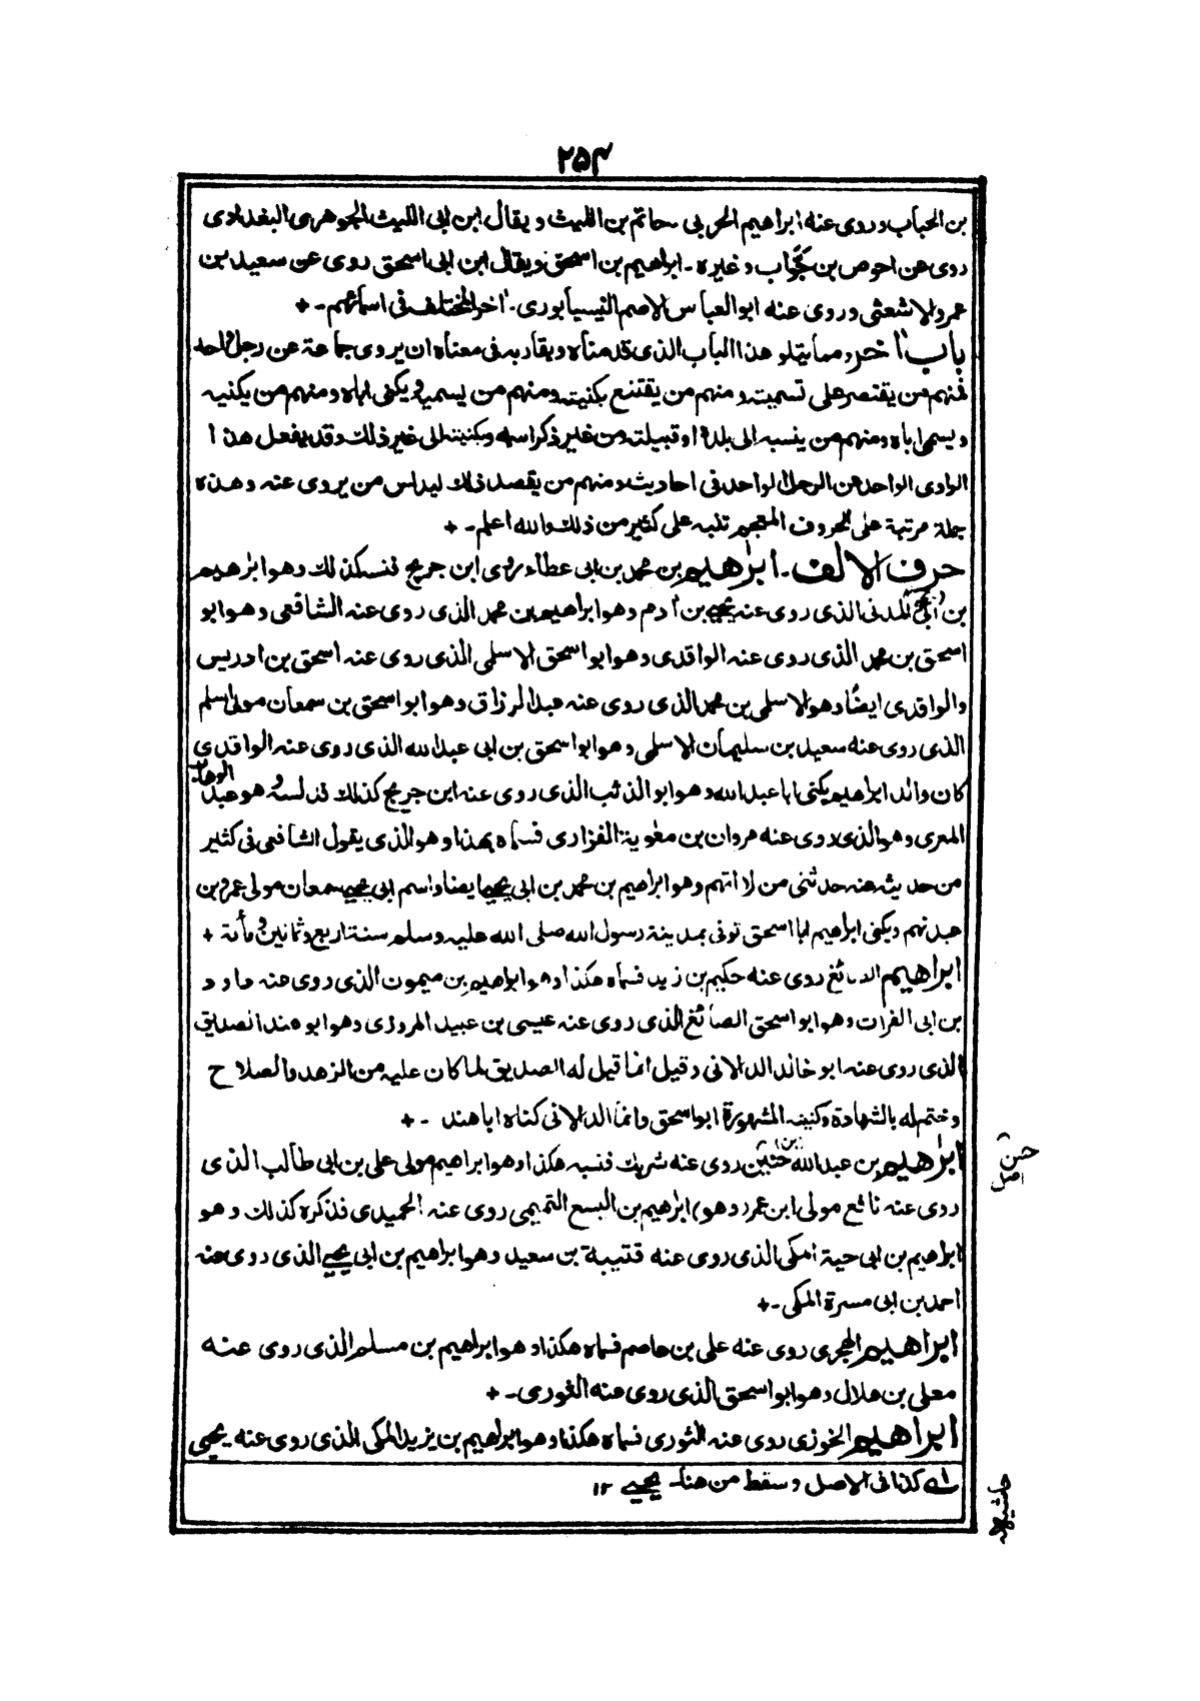 ۲۵۴
بن الحباب وروى عنه ابراهيم الحربي۔ حاتم بن الليث ويقال ابن ابى الليث الجوهرى البغدادى
روى عن احوص بن جَوّاب وغيره۔ ابراهيم بن اسحق ويقال ابن ابى اسحق روى عن سعيد بن
عمرو الاشعثى وروى عنه ابو العباس الاصم النيسابورى۔ اخر المختلف فى اسمائهم۔+
باب اخر ومما يتلو هذا الباب الذى قدمناه ويقاربه فى معناه ان يروى جماعة عن رجل واحد
فمنهم من يقتصر على تسميته ومنهم من يقتنع بكنيته ومنهم من يسميه ويكنى اباه ومنهم من يكنيه
ويسمى اباه ومنهم من ينسبه الى بلده او قبيلته من غير ذكر اسمه وكنيته الى غير ذلك وقد يفعل هذا
الراوى الواحد عن الرجل الواحد فى احاديث ومنهم من يقصد ذلك ليدلس من يروى عنه وهذه
جملة مرتبة على الحروف المعجم تنبه على كثير من ذلك والله اعلم۔+
حرف الالف۔ ابراهيم بن محمد بن ابى عطاء روى ابن جريج فنسبه كذلك وهو ابراهيم
بن ابى يحيى المدنى الذى روى عنه يحيى بن ادم وهو ابراهيم بن محمد الذى روى عنه الشافعى وهو ابو
اسحق بن محمد الذى روى عنه الواقدى وهو ابو اسحق الاسلمى الذى روى عنه اسحق بن ادريس
والواقدى ايضًا وهو الاسلمى بن محمد الذى روى عنه عبد الرزاق وهو ابو اسحق بن سمعان مولى اسلم
الذى روى عنه سعيد بن سليمان الاسلمى وهو ابو اسحق بن ابى عبد الله الذى روى عنه الواقدى
كان والد ابراهيم يكنى ابا عبد الله وهو ابو الذئب الذى روى عنه ابن جريج كذلك فدلسه وهو عبد الوهاب
المعرى وهو الذى روى عنه مروان بن معوية الفزارى فسماه بهذا وهو الذى يقول الشافعى فى كثير
من حديثه عنه حدثنى من لا اتهم وهو ابراهيم بن محمد بن ابى يحيى ايضا واسم ابى يحيى سمعان مولى عمرو بن
عبد نهم ويكنى ابراهيم ابا اسحق توفى بمدينة رسول الله صلى الله عليه وسلم سنة اربع وثمانين ومأئة +
ابراهيم الصائغ روى عنه حكيم بن زيد فسماه هكذا وهو ابراهيم بن ميمون الذى روى عنه داود
بن ابى الفرات وهو ابو اسحق الصائغ الذى روى عنه عيسى بن عبيد المروزى وهو ابو هند الصديق
الذى روى عنه ابو خالد الدالانى وقيل انما قيل له الصديق لما كان عليه من الزهد والصلاح
وختم له بالشهادة وكنيته المشهورة ابو اسحق وانما الدالانى كناه ابا هند ۔+
ابراهيم بن عبد الله (بن) حنين روى عنه شريك فنسبه هكذا وهو ابراهيم مولى على بن ابى طالب الذى
حسن
اصل
روى عنه نافع مولى ابن عمر (وهو) ابراهيم بن اليسع التميمى روى عنه الحميدى فذكره كذلك وهو
ابراهيم بن ابى حية المكى الذى روى عنه قتيبة بن سعيد وهو ابراهيم بن ابى يحيى الذى روى عنه
احمد بن ابى مسرة المكى۔+
ابراهيم الهجرى روى عنه على بن عاصم فسماه هكذا وهو ابراهيم بن مسلم الذى روى عنه
معلى بن هلال وهو ابو اسحق الذى روى عنه الثورى۔+
ابراهيم الخوزى روى عنه الثورى فسماه هكذا وهو ابراهيم بن يزيد المكى الذى روى عنه يحيى
كذا فى الاصل وسقط من هنا۔ يحيى ١٢
حاشيه